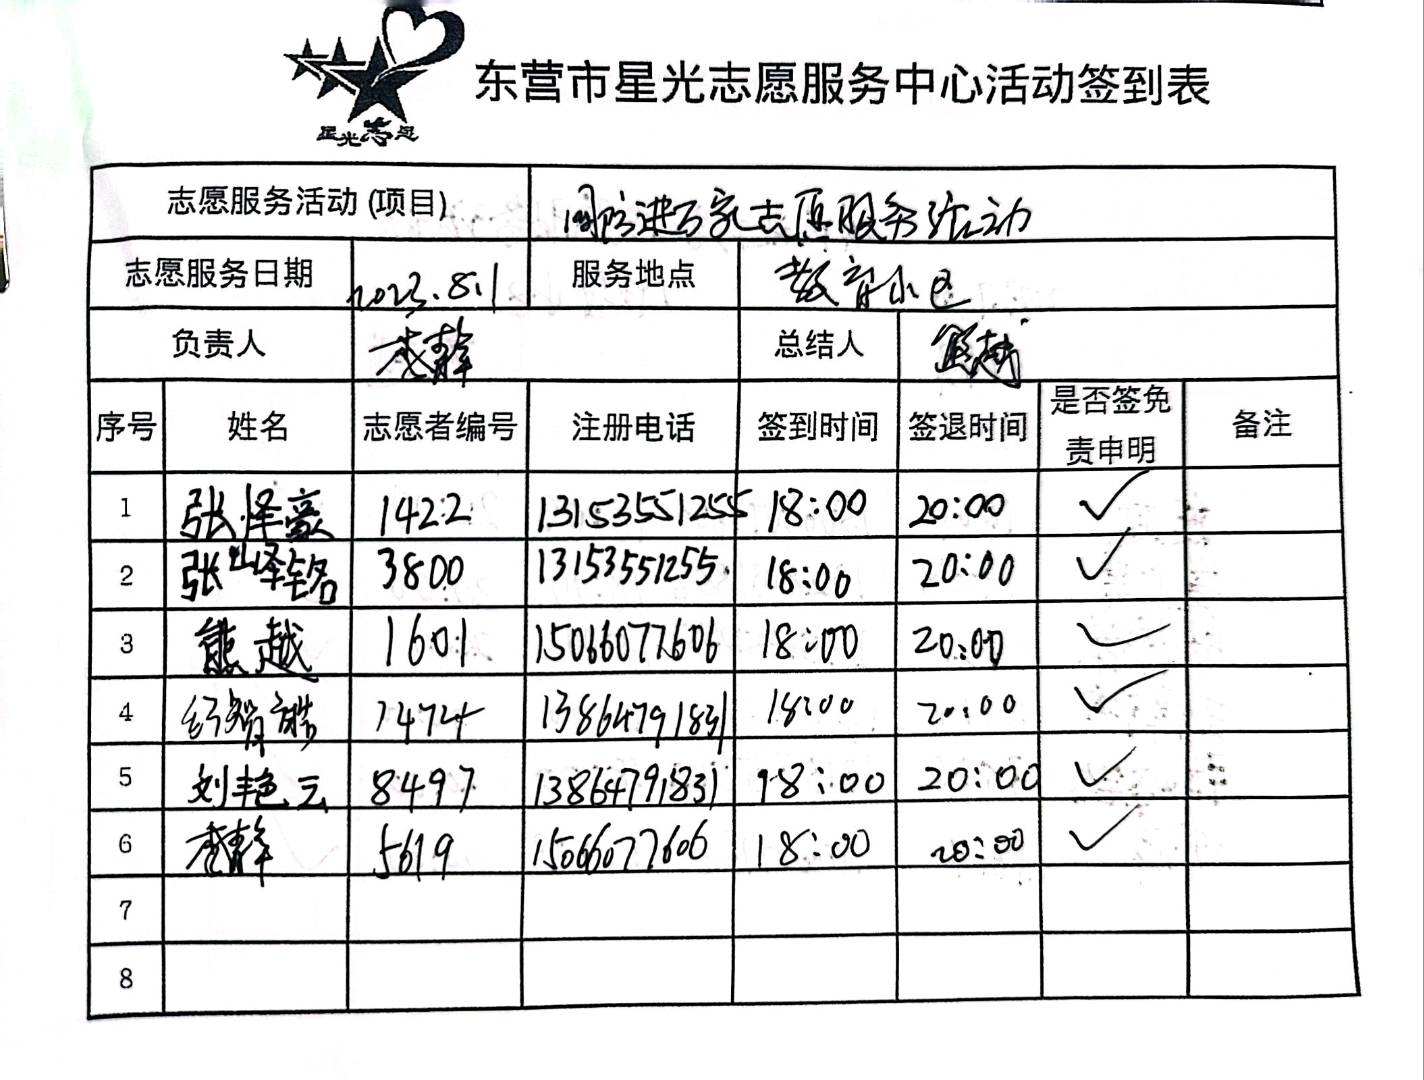 星光志愿
东营市星光志愿服务中心活动签到表
志愿服务活动 (项目) 国防进万家志愿服务活动
志愿服务日期 2023.8.1 服务地点 教育小区
负责人 李静 总结人 熊越
序号 姓名 志愿者编号 注册电话 签到时间 签退时间 是否签免责申明 备注
1 张泽豪 1422 13153551255 18:00 20:00 ✓
2 张峄铭 3800 13153551255. 18:00 20:00 ✓
3 熊越 1601 15066077606 18:00 20:00 ✓
4 7474 13864791831 18:00 20:00 ✓
5 刘艳云 8497 13864791831 18:00 20:00 ✓
6 李静 5619 15066077606 18:00 20:00 ✓
7
8